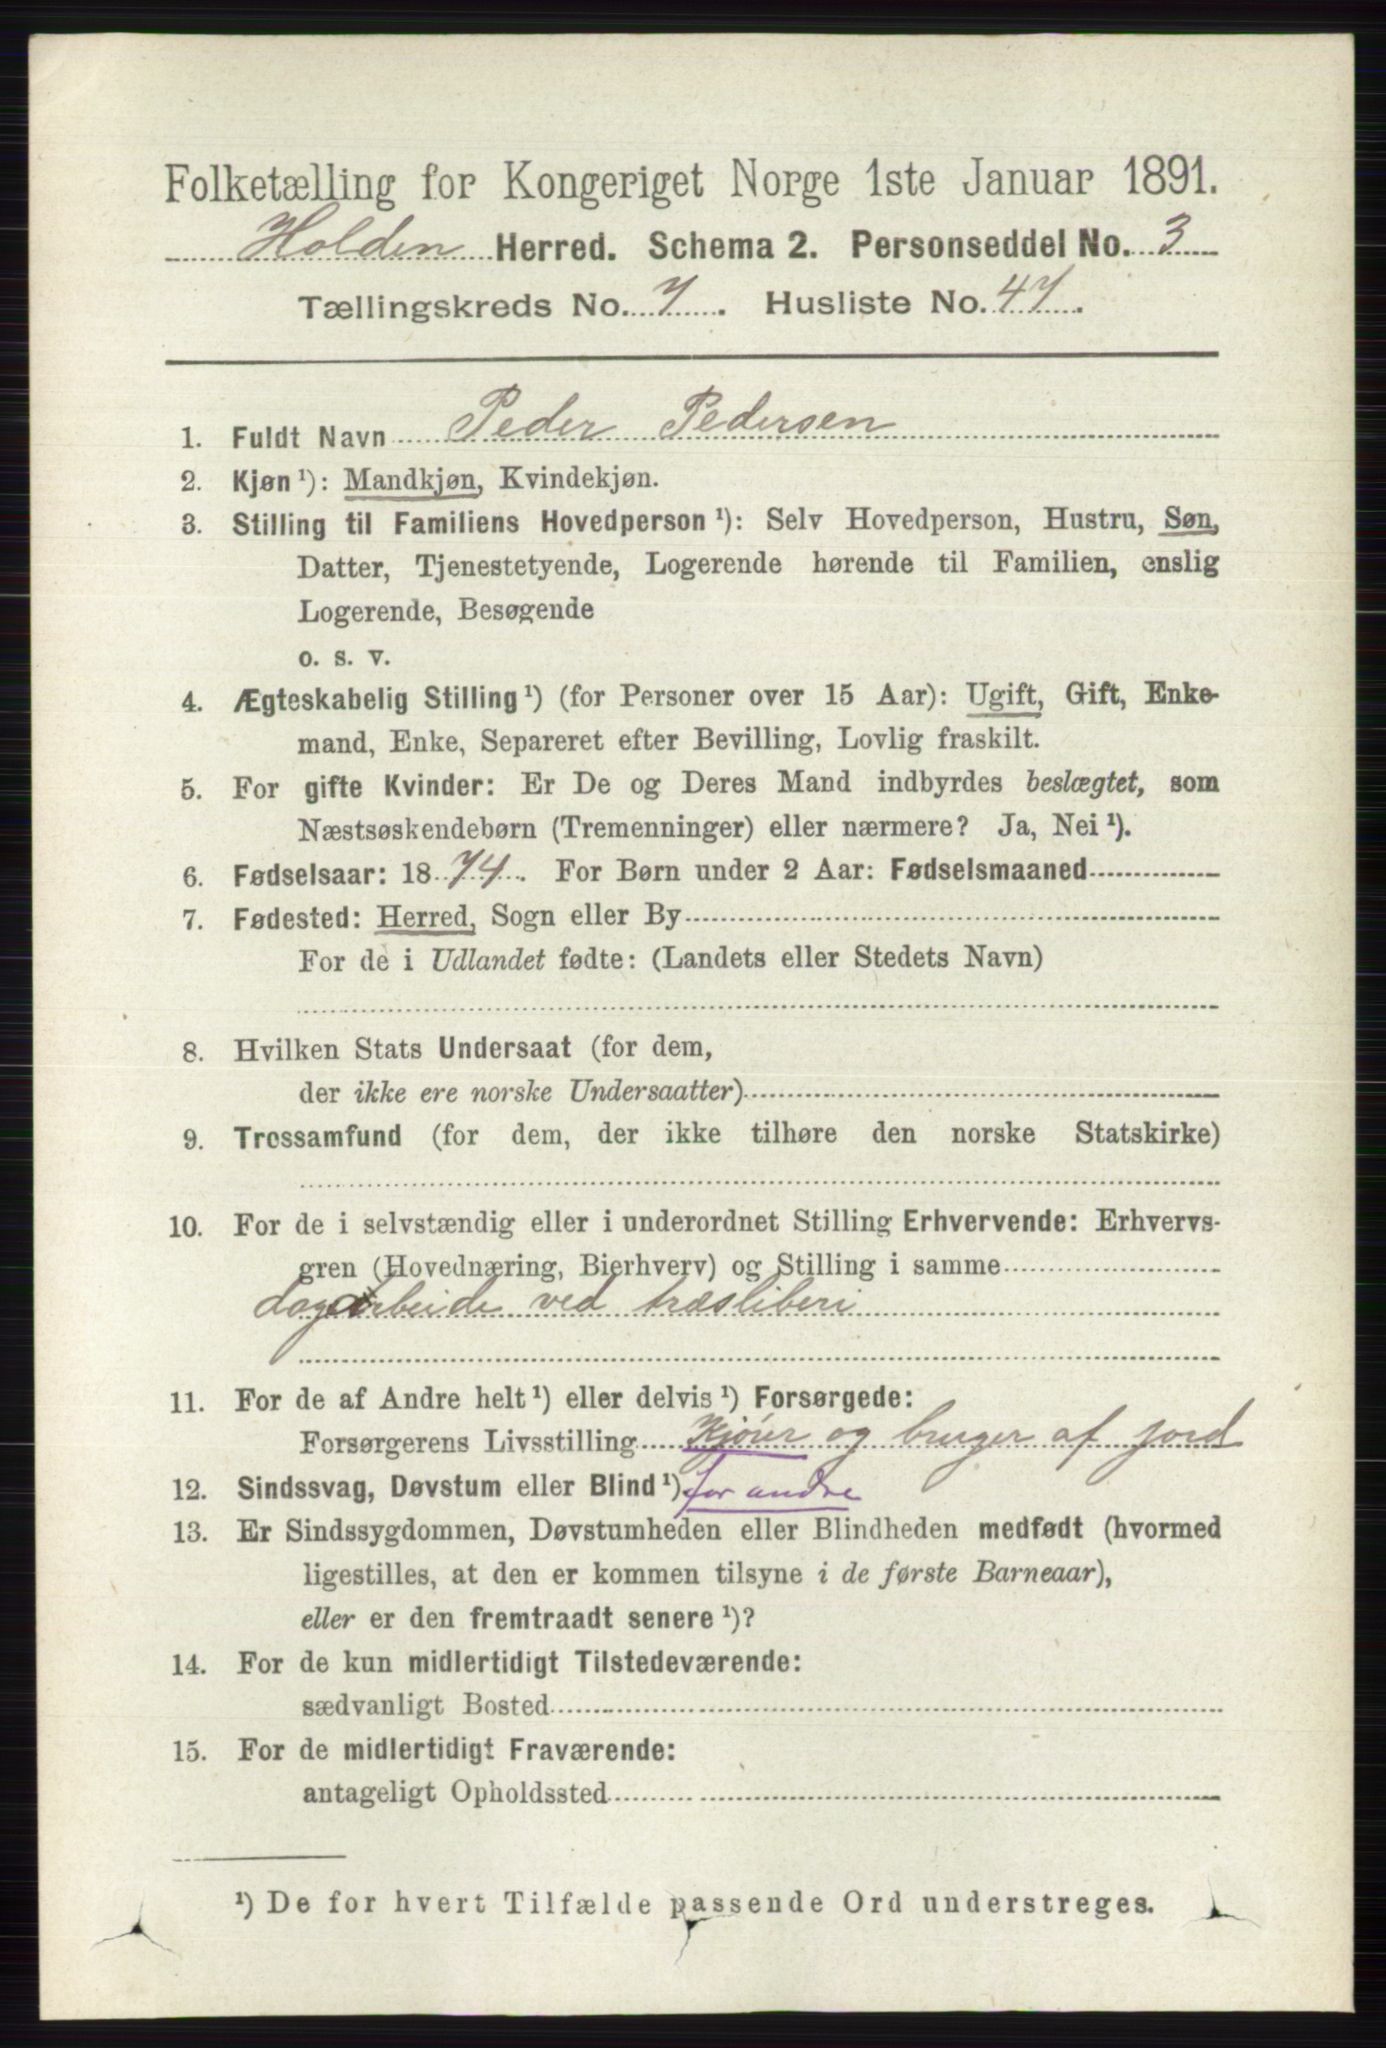 Folketælling for Kongeriget Norge 1ste Januar 1891.
Holden Herred. Schema 2. Personseddel No. 3
Tællingskreds No. 7. Husliste No. 47.
1. Fuldt Navn Peder Pedersen
2. Kjøn ¹): Mandkjøn, Kvindekjøn.
3. Stilling til Familiens Hovedperson ¹): Selv Hovedperson, Hustru, Søn,
Datter, Tjenestetyende, Logerende hørende til Familien, enslig
Logerende, Besøgende
o. s. v.
4. Ægteskabelig Stilling ¹) (for Personer over 15 Aar): Ugift, Gift, Enke-
mand, Enke, Separeret efter Bevilling, Lovlig fraskilt.
5. For gifte Kvinder: Er De og Deres Mand indbyrdes beslægtet, som
Næstsøskendebørn (Tremenninger) eller nærmere? Ja, Nei ¹).
6. Fødselsaar: 1874. For Børn under 2 Aar: Fødselsmaaned
7. Fødested: Herred, Sogn eller By
For de i Udlandet fødte: (Landets eller Stedets Navn)
8. Hvilken Stats Undersaat (for dem,
der ikke ere norske Undersaatter)
9. Trossamfund (for dem, der ikke tilhøre den norske Statskirke)
10. For de i selvstændig eller i underordnet Stilling Erhvervende: Erhvervs-
gren (Hovednæring, Bierhverv) og Stilling i samme
dagarbeide ved træsliberi
11. For de af Andre helt ¹) eller delvis ¹) Forsørgede:
Forsørgerens Livsstilling Kjörer og bruger af jord
12. Sindssvag, Døvstum eller Blind ¹) for andre
13. Er Sindssygdommen, Døvstumheden eller Blindheden medfødt (hvormed
ligestilles, at den er kommen tilsyne i de første Barneaar),
eller er den fremtraadt senere ¹)?
14. For de kun midlertidigt Tilstedeværende:
sædvanligt Bosted
15. For de midlertidigt Fraværende:
antageligt Opholdssted
¹) De for hvert Tilfælde passende Ord understreges.